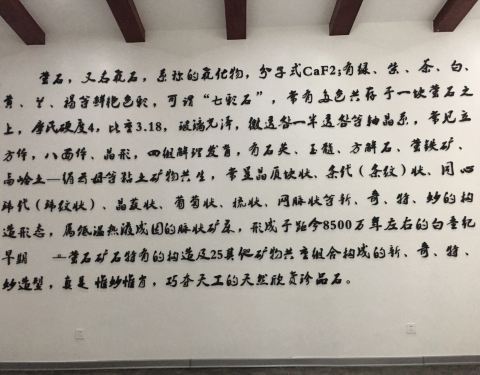 萤石，又名氟石，系钙的氟化物，分子式CaF2;有绿、紫、茶、白、
黄、兰、褐等鲜艳色彩，可谓“七彩石”，常有多色共存于一块萤石之
上，摩氏硬度4，比重3.18，玻璃光泽，微透明—半透明等轴晶系，常见立
方体，八面体、晶形，四组解理发育，有石英、玉髓、方解石、黄铁矿、
高岭土—绢云母等粘土矿物共生，常呈晶质块状、条代（条纹）状、同心
环代（环纹状）、晶簇状、葡萄状、梳状、网脉状等新、奇、特、妙的构
造形态，属低温热液成因的脉状矿床，形成于距今8500万年左右的白垩纪
早期 —萤石矿石特有的构造及25其他矿物共生组合构成的新、奇、特、
妙造型，真是惟妙惟肖，巧夺天工的天然欣赏珍品石。